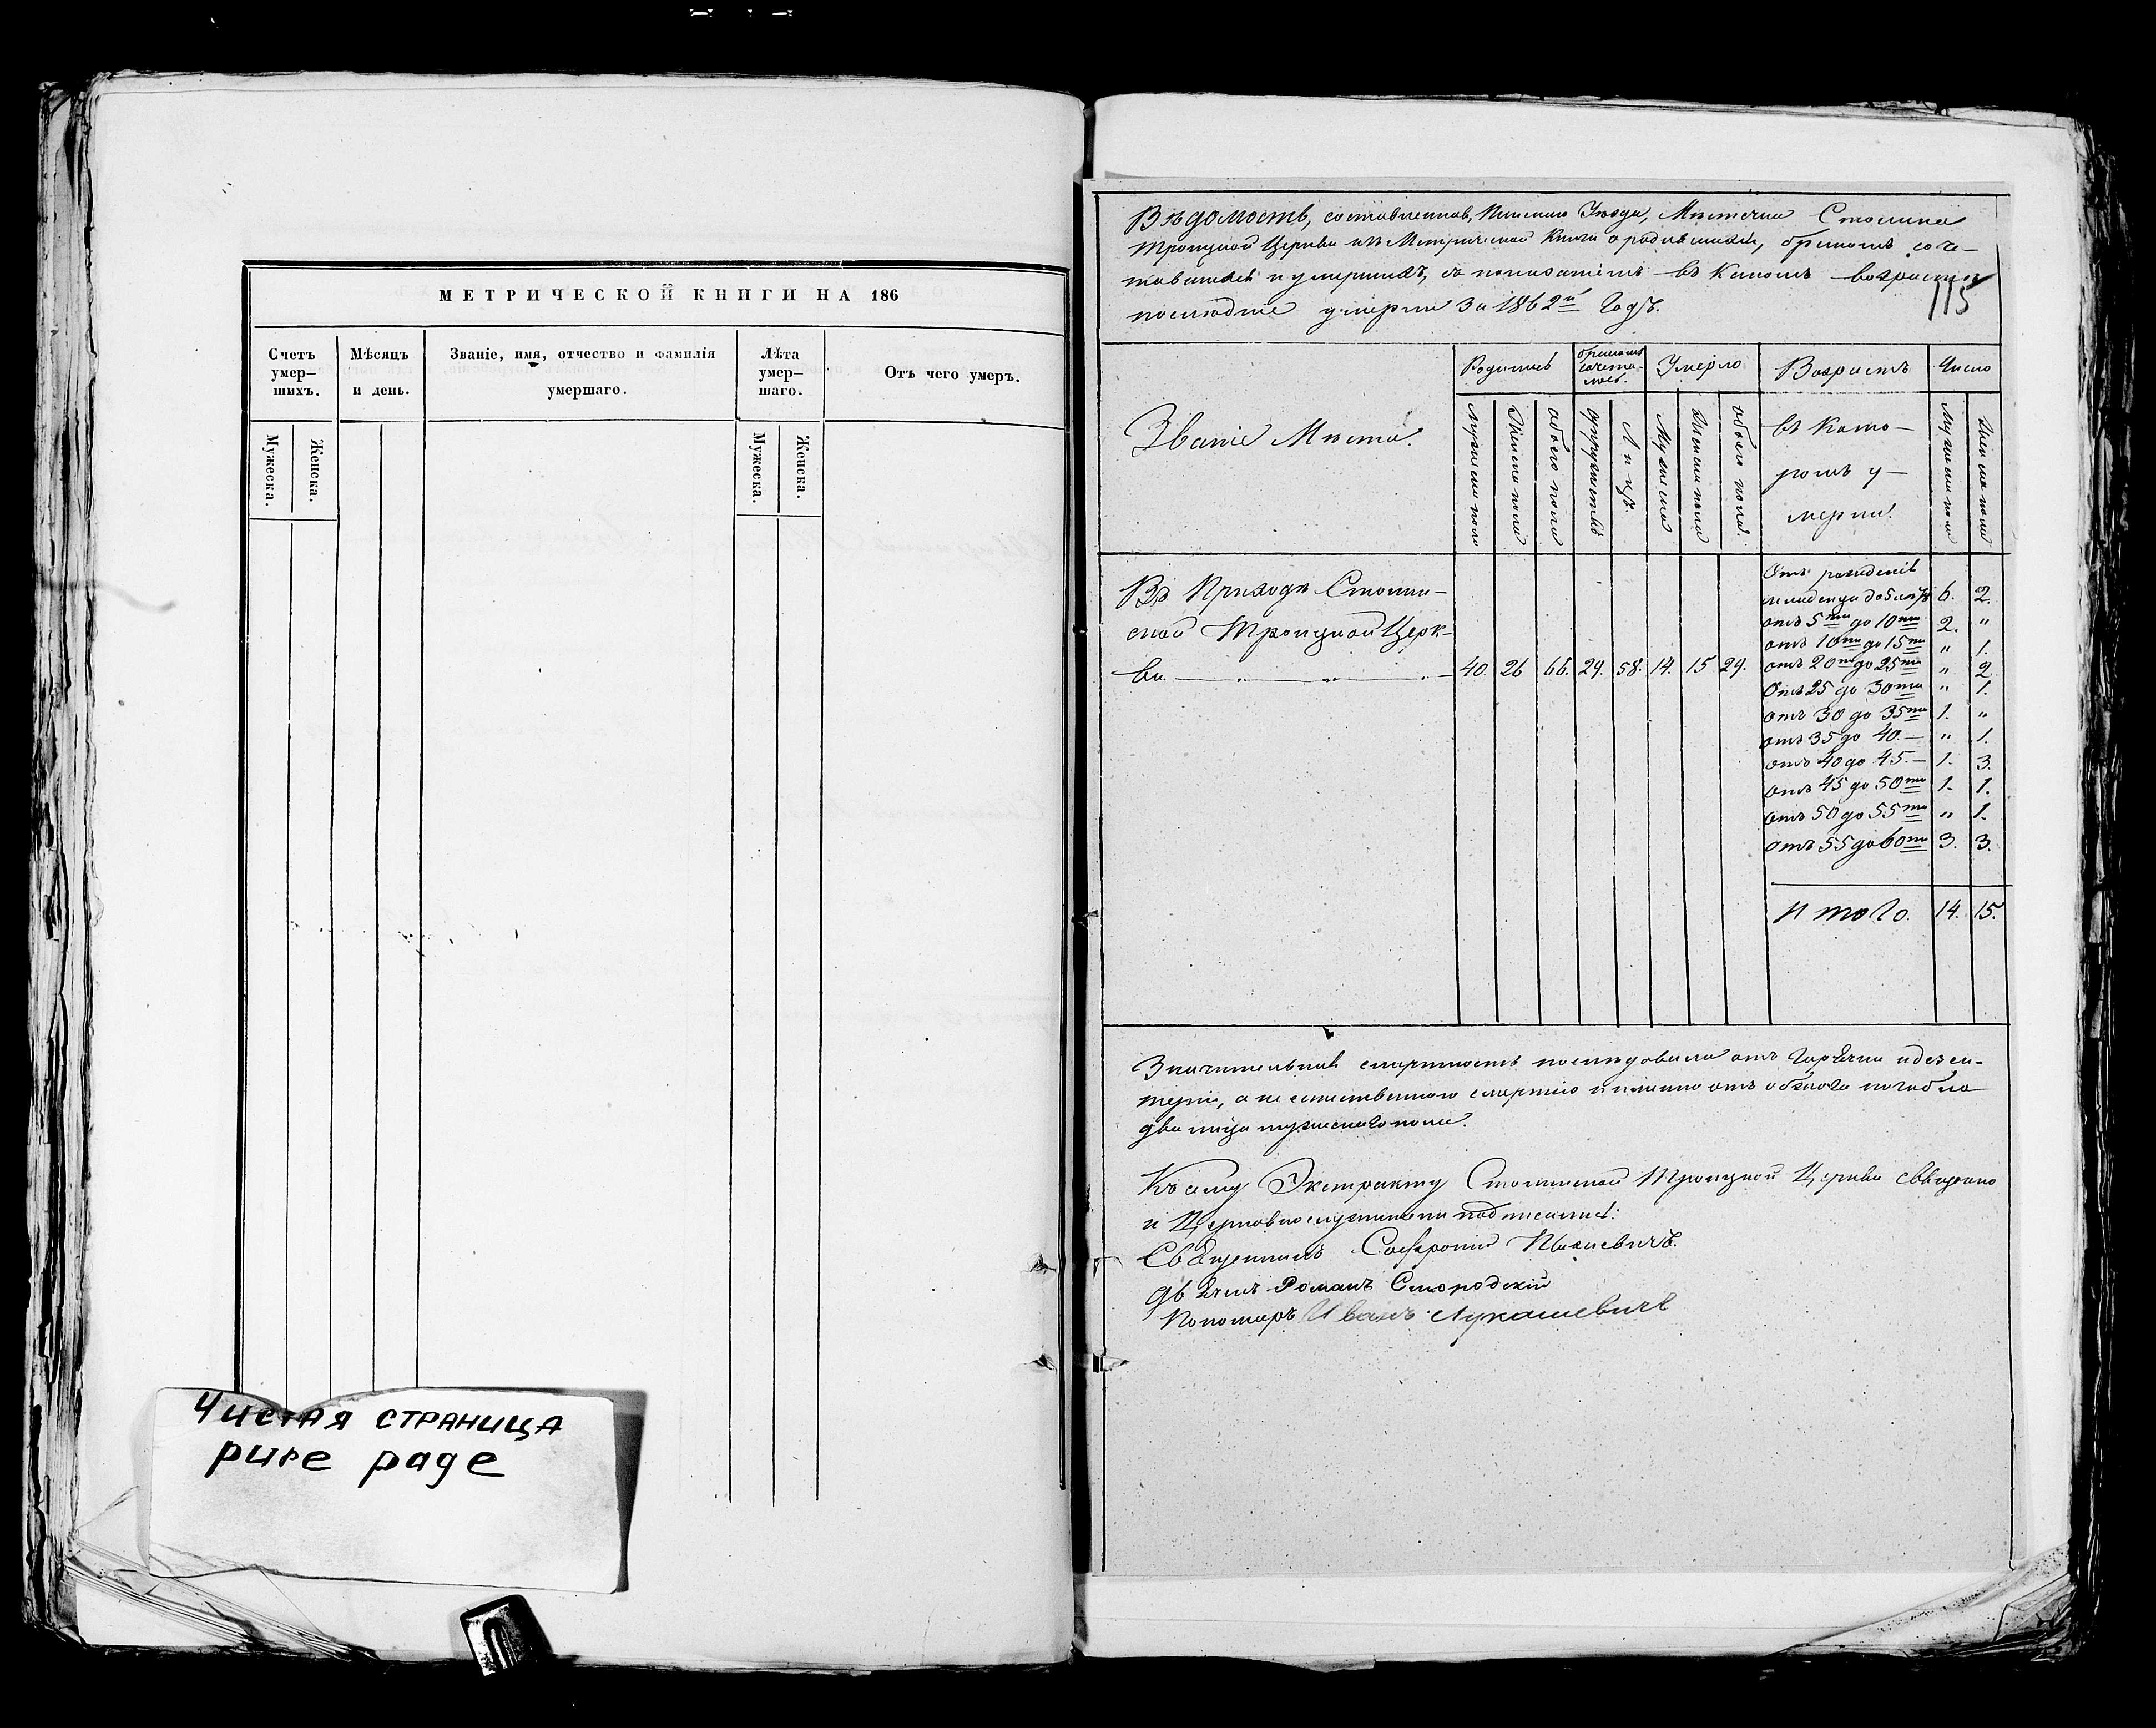 МЕТРИЧЕСКОЙ КНИГИ НА 186
Счетъ умер-шихъ.
Мѣсяцъ и день.
Званіе, имя, отчество и фамилія умершаго.
Лѣта умер-шаго.
Отъ чего умеръ.
Мужеска.
Женска.
Мужеска.
Женска.
Чистая страница
pure page
Вѣдомость, составленная, Пинскаго Уѣзда, Мѣстечка Столина
Троицкой Церкви изъ Метрической Книги о родившихся, бракомъ соче-
тавшихся и умершихъ, съ показаніемъ въ какомъ возрастѣ
115
послѣдніе умерли за 1862й Годъ.
Званіе Мѣста.
Родилось
бракомъ сочета-лось.
Умерло
Возрастъ
Число
въ Кото-
ромъ у-
мерли.
Мужеска пола
Женска пола
обоего пола
супружествъ
Лицъ.
Мужеска
Женска пола
обоего пола.
Мужеска пола
Женска пола
Въ Приходѣ Столин-
ской Троицкой Церк-
ви. 40. 26 66. 29. 58. 14. 15 29.
Отъ рожденія
младенца до 5 лѣтъ 6. 2.
отъ 5ти до 10ти 2. "
отъ 10ти до 15ти " 1.
отъ 20ти до 25ти " 2
Отъ 25 до 30ти " 1.
отъ 30 до 35ти 1. "
отъ 35 до 40.— " 1.
отъ 40 до 45.— 1. 3.
отъ 45 до 50ти 1. 1.
отъ 50 до 55ти " 1.
отъ 55 до 60ти 3. 3.
Итого. 14. 15.
Значительная смертность послѣдовала отъ Горячки и дезен-
теріи, а не естественною смертію и именно отъ погибло
два лица мужескаго пола.
Къ сему Экстракту Столинской Троицкой Церкви священно
и Церковнослужители подписались:
Священникъ Софроній
Дьячекъ Романъ Смородскій
Пономарь Иванъ Лукашевичъ